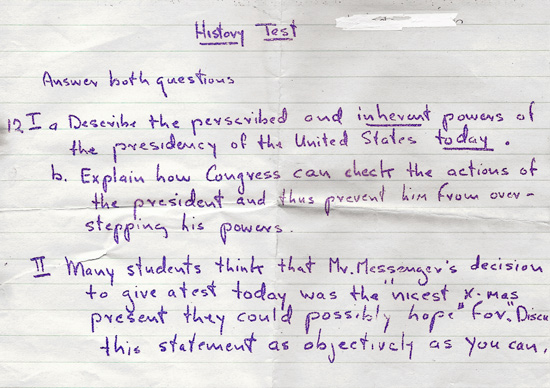 History Test
Answer both questions
12 I a Describe the perscribed and inherent powers of
the presidency of the United States today.
b. Explain how Congress can check the actions of
the president and thus prevent him from over-
stepping his powers.
II Many students think that Mr. Messenger's decision
to give a test today was the "nicest X-mas
present they could possibly hope" for." Discu
this statement as objectively as you can.